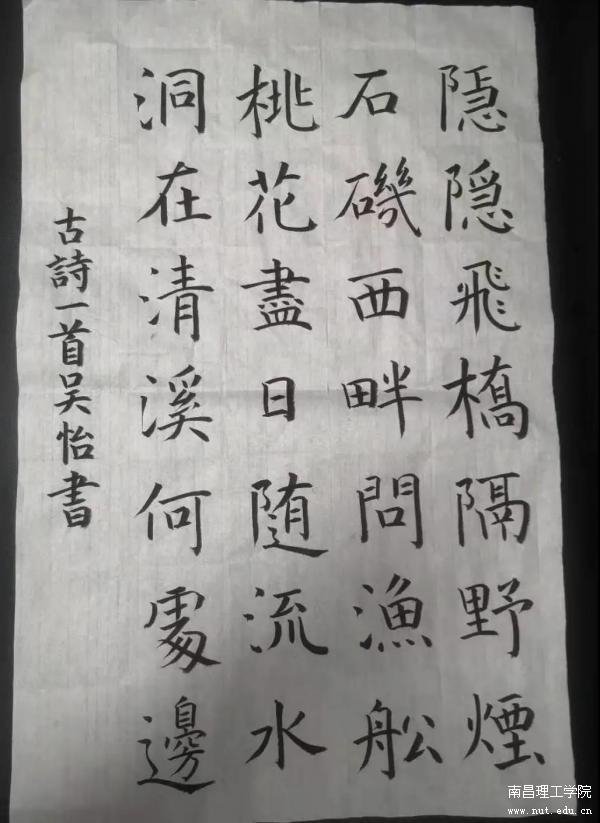 隱隠飛橋隔野煙
石磯西畔問漁舩
桃花盡日随流水
洞在清溪何處邊
古詩一首吴怡書
南昌理工学院
www.nut.edu.cn